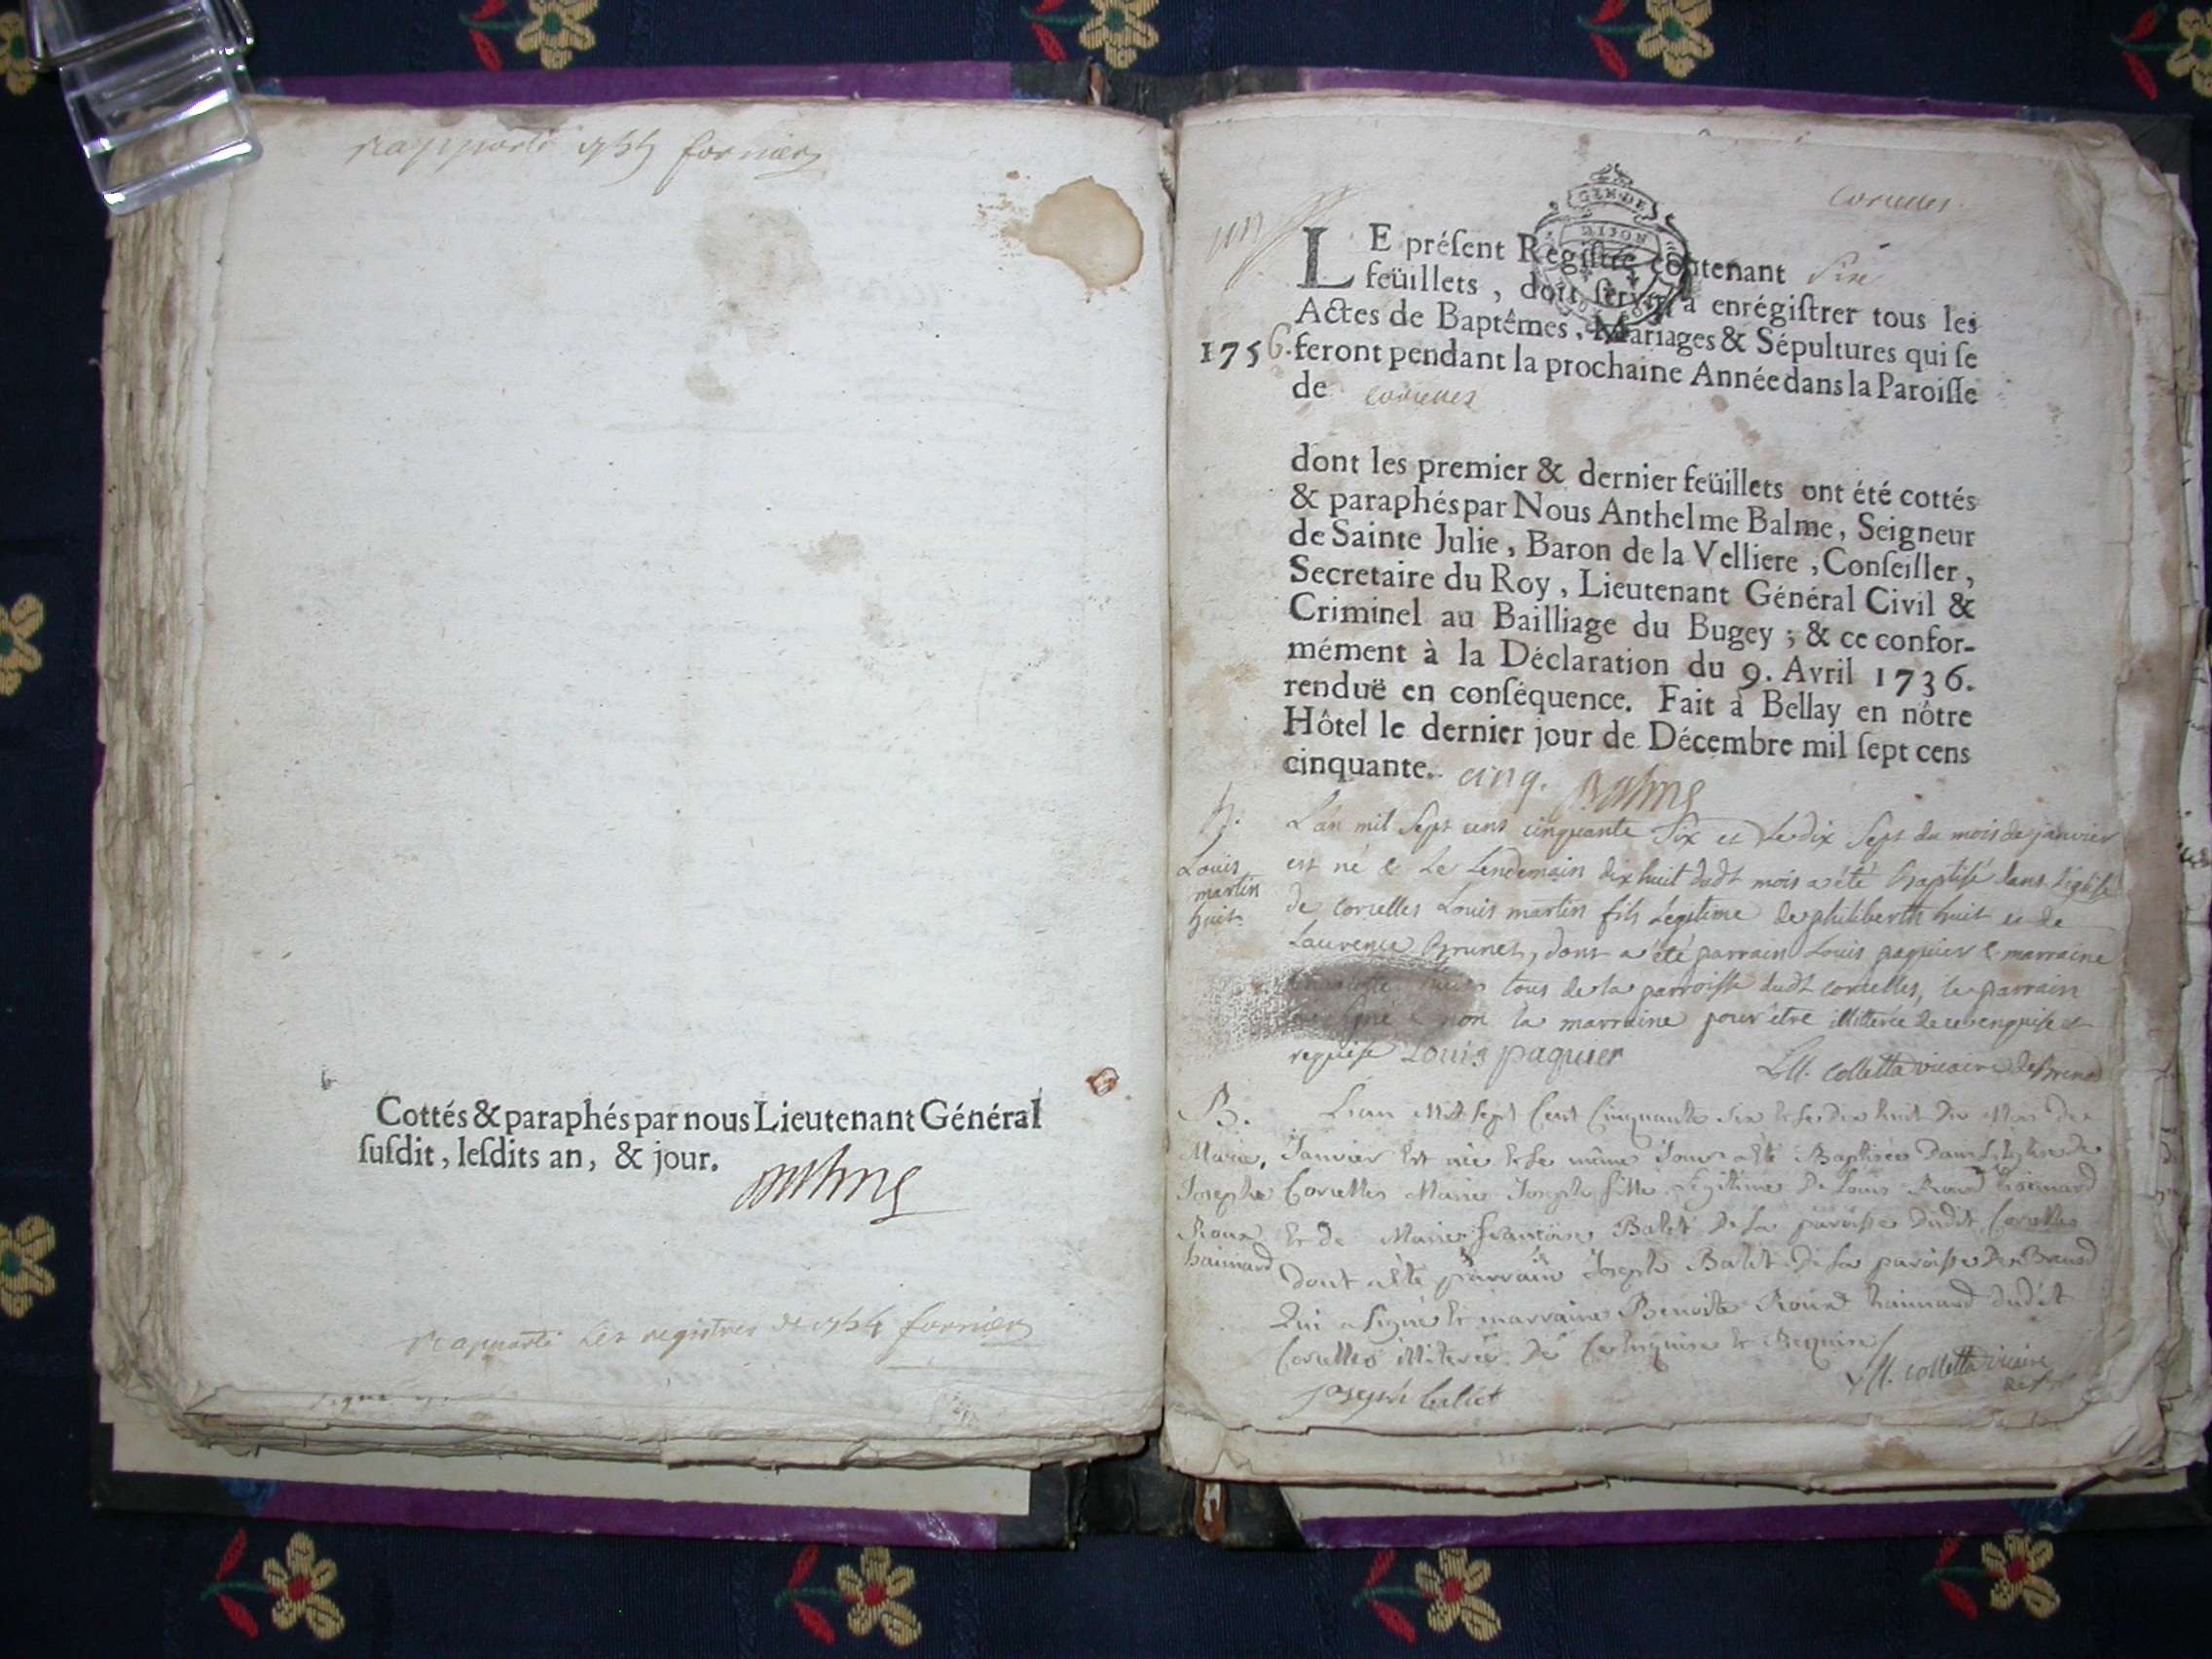 rapporté 1755 fornier
Cottés & paraphés par nous Lieutenant Général
ſuſdit, leſdits an, & jour.
Balme
Rapporté les registres de 1754 fornier
GEN. DE
DIJON
Corcelles.
LE préſent Regiſtre contenant Six
feüillets, doit ſervir à enrégiſtrer tous les
Actes de Baptêmes, Mariages & Sépultures qui ſe
1756. feront pendant la prochaine Année dans la Paroiſſe
de corcelles
dont les premier & dernier feüillets ont été cottés
& paraphés par Nous Anthelme Balme, Seigneur
de Sainte Julie, Baron de la Velliere, Conſeiller,
Secretaire du Roy, Lieutenant Général Civil &
Criminel au Bailliage du Bugey ; & ce confor-
mément à la Déclaration du 9. Avril 1736.
renduë en conſéquence. Fait à Bellay en nôtre
Hôtel le dernier jour de Décembre mil ſept cens
cinquante. cinq. Balme
B.
Louis
martin
huit
L'an mil Sept cens cinquante Six et Le dix Sept du mois de janvier
est né & Le Lendemain dix huit dudt mois a été baptisé dans L'église
de corcelles Louis martin fils Légitime de philiberth huit et de
Laurence Brunet, dont a été parrain Louis paquier & marraine
tous de la parroisse dudt corcelles, le parrain
signé & non la marraine pour être illiterée de ce enquise et
requise Louis paquier
Colletta vicaire de Brenod
B.
Marie,
Josephe
Roux
haimard
L'an Mil Sept Cent Cinquante Six & le dix huit Du Mois De
Janvier Est née & le même Jour a été Baptisée Dans L'Eglise de
Corcelles Marie Joseph fille Légitime De Louis Roux haimard
Et de Marie françoise Balet De la paroisse Dudit Corcelles
Dont a été parrain Joseph Balet De la paroisse De Brenod
Qui a Signé & marraine Benoite Roux haimard dudit
Corcelles illiterée De Ce Enquise & Requise
joseph ballet
Colletta vicaire